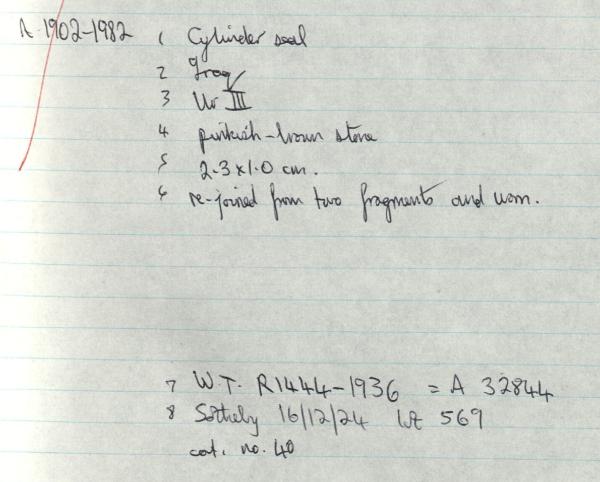 A 1902-1982 1 Cylinder seal
2 Iraq
3 Ur III
4 pinkish-brown stone
5 2.3 x 1.0 cm.
6 re-joined from two fragments and worn.
7 W.T. R1444-1936 = A 32844
8 Sotheby 16/12/24 lot 569
cat. no. 40